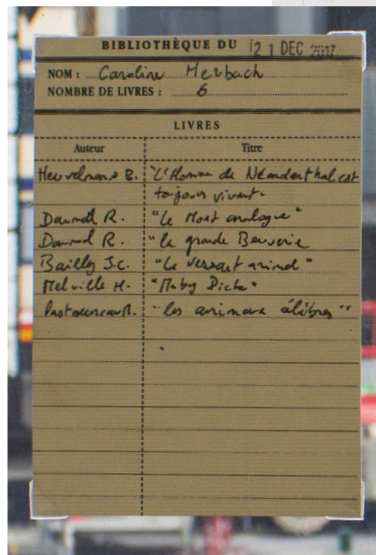 BIBLIOTHÈQUE DU 21 DEC 2017
NOM : Caroline Herbach
NOMBRE DE LIVRES : 6
LIVRES
Auteur Titre
Heuvelmans B. "L'Homme de Néanderthal est
toujours vivant.
Daumal R. "Le Mont analogue"
Daumal R. "la grande Beuverie
Bailly J.C. "Le versant animal"
Melville H. "Moby Dick"
Pastoureau M. "les animaux célèbres"